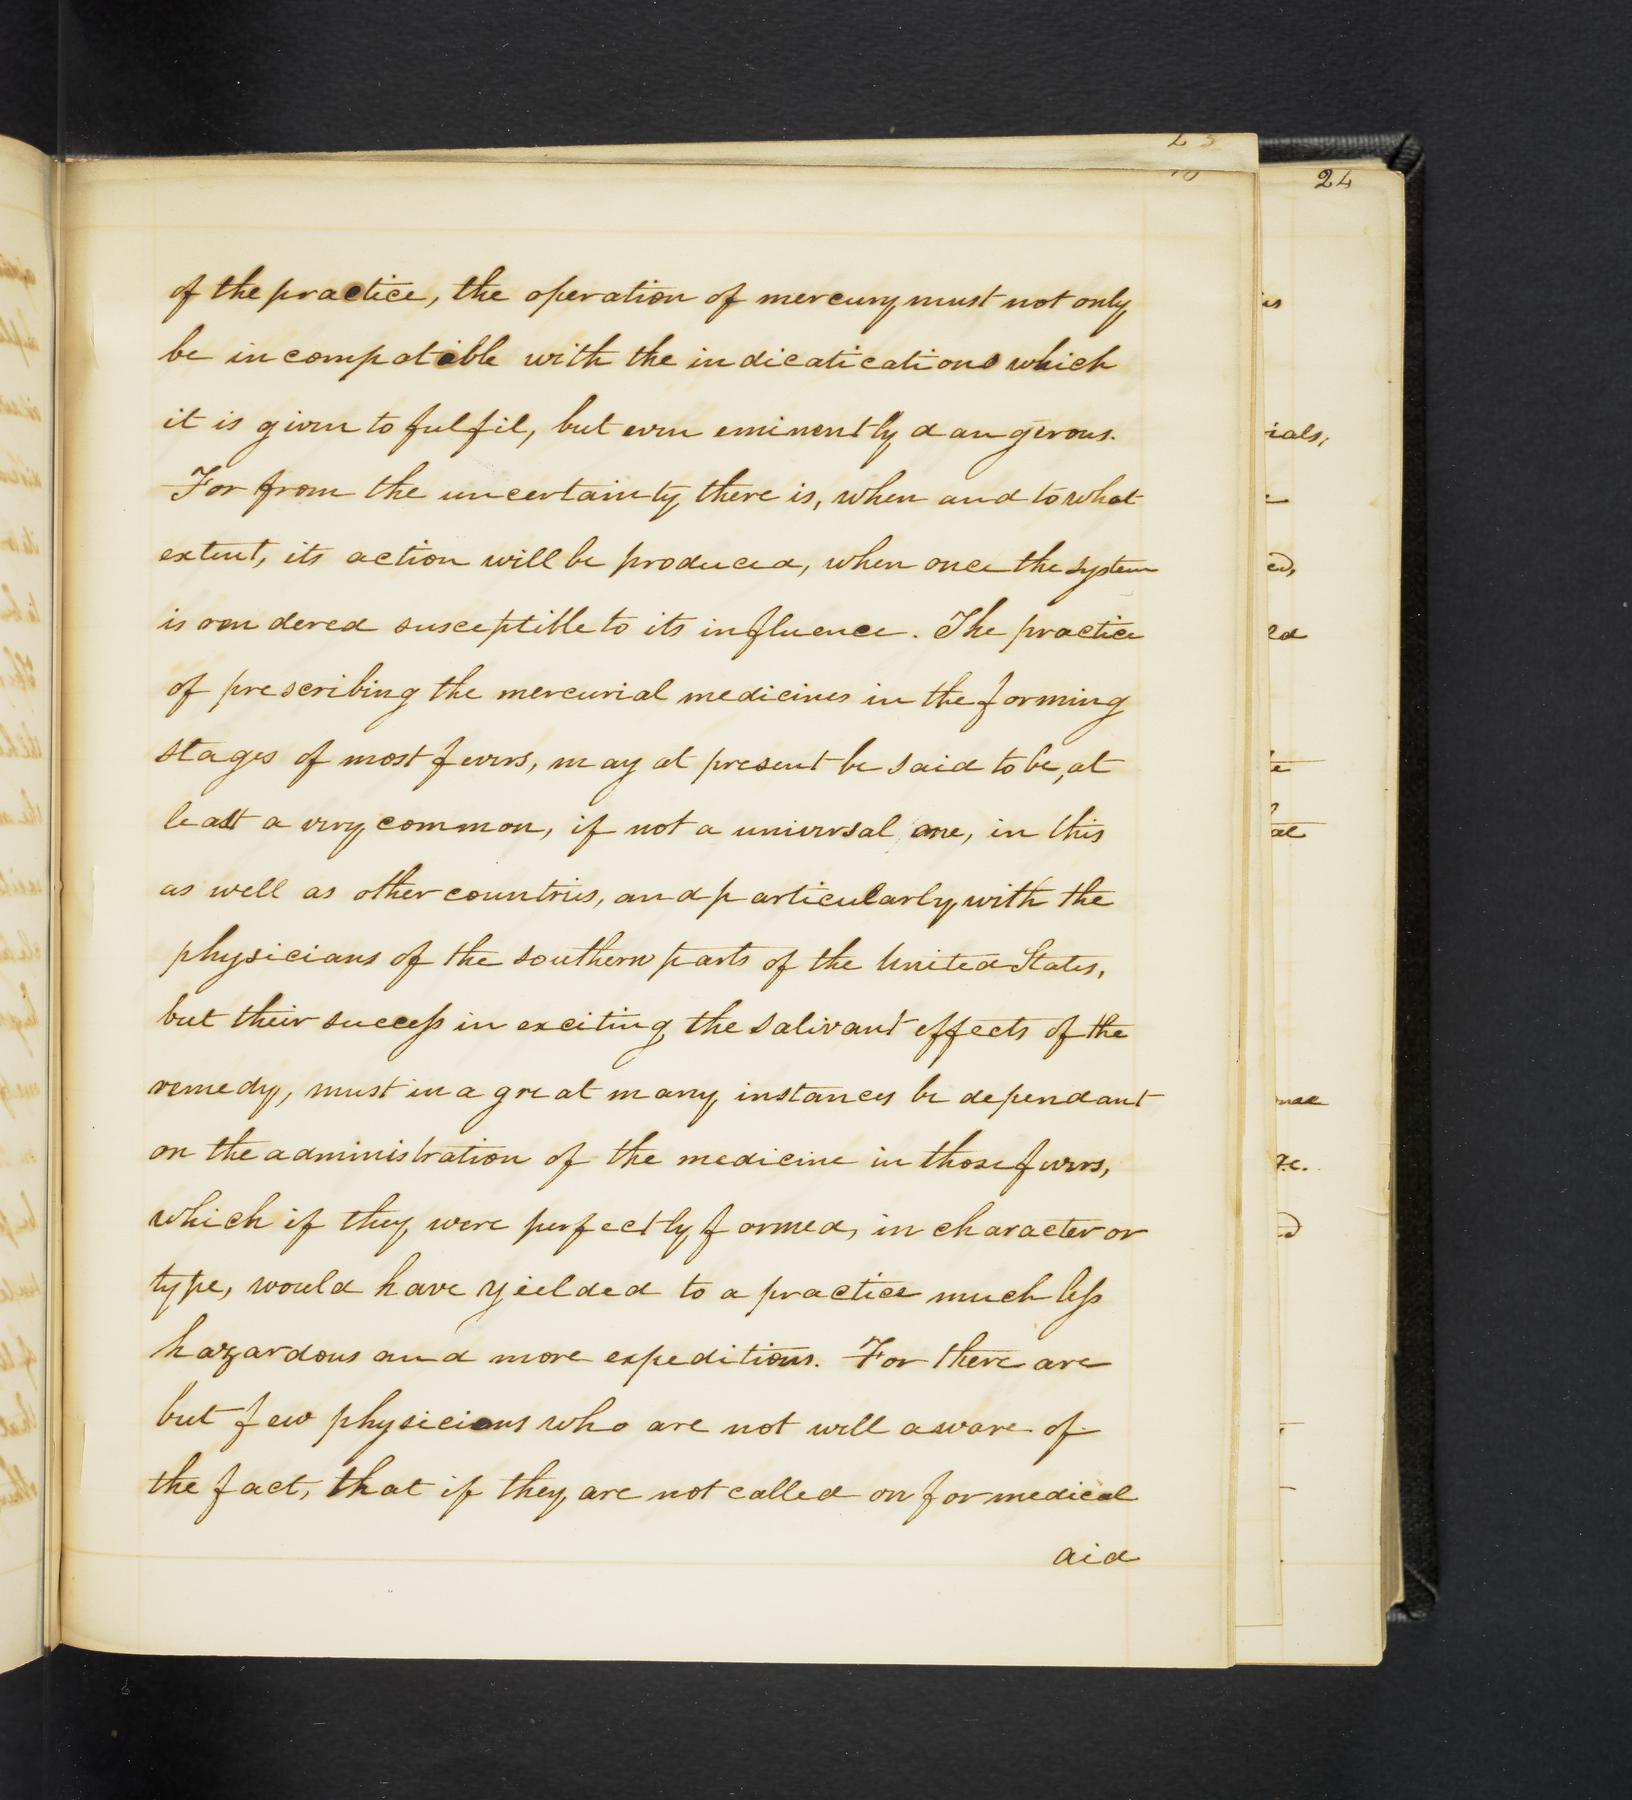 24
of the practice, the operation of mercury must not only
be incompatible with the indicatications which
it is given to fulfil, but even eminently dangerous.
For from the uncertainty there is, when and to what
extent, its action will be produced, when once the system
is rendered susceptible to its influence. The practice
of prescribing the mercurial medicines in the forming
stages of most fevers, may at present be said to be, at
least a very common, if not a universal one, in this
as well as other countries, and particularly with the
physicians of the southern parts of the United States,
but their success in exciting the salivant effects of the
remedy, must in a great many instances be dependant
on the administration of the medicine in those fevers,
which if they were perfectly formed, in character or
type, would have yielded to a practice much less
hazardous and more expeditious. For there are
but few physicians who are not well aware of
the fact, that if they are not called on for medical
aid